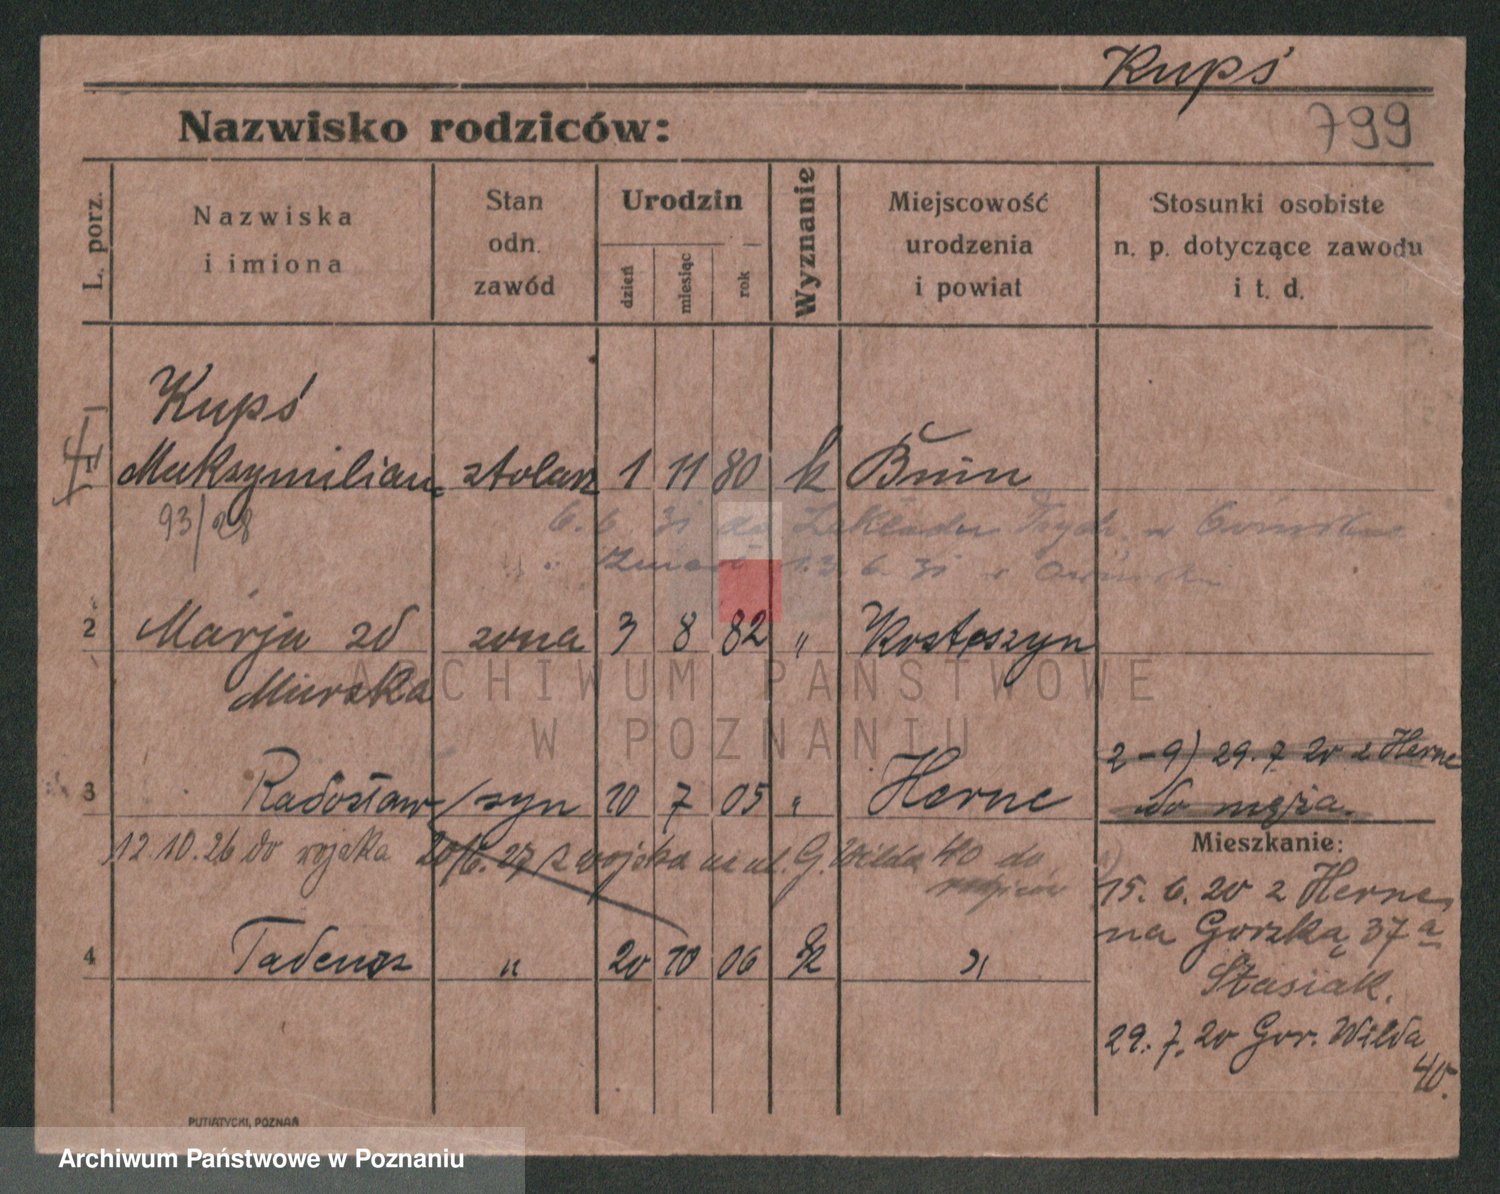 Kupś
799
Nazwisko rodziców:
L. porz.
Nazwiska
i imiona
Stan
odn.
zawód
Urodzin
dzień
miesiąc
rok
Wyznanie
Miejscowość
urodzenia
i powiat
Stosunki osobiste
n. p. dotyczące zawodu
i t. d.
Kupś
1 Maksymilian stolarz 1 11 80 k Bnin
93/28
6. 6. 31 do Zakładu Psych. w Owińskach
zmarł 13. 6. 31 w
2 Marja zd żona 3 8 82 " Kostoszyn
Murska
2-9) 29. 7. 20 z Herne
do męża.
3 Radosław syn 10 7 05 " Herne
Mieszkanie:
12.10.26 do wojska 20/6. 27 z wojska na ul. G. Wilda 40 do
rodziców
15. 6. 20 z Herne
na Gorską 37a
4 Tadeusz " 20 10 06 k "
Stasiak.
29. 7. 20 Gor. Wilda
40.
PUTIATYCKI, POZNAŃ
ARCHIWUM PAŃSTWOWE
W POZNANIU
Archiwum Państwowe w Poznaniu